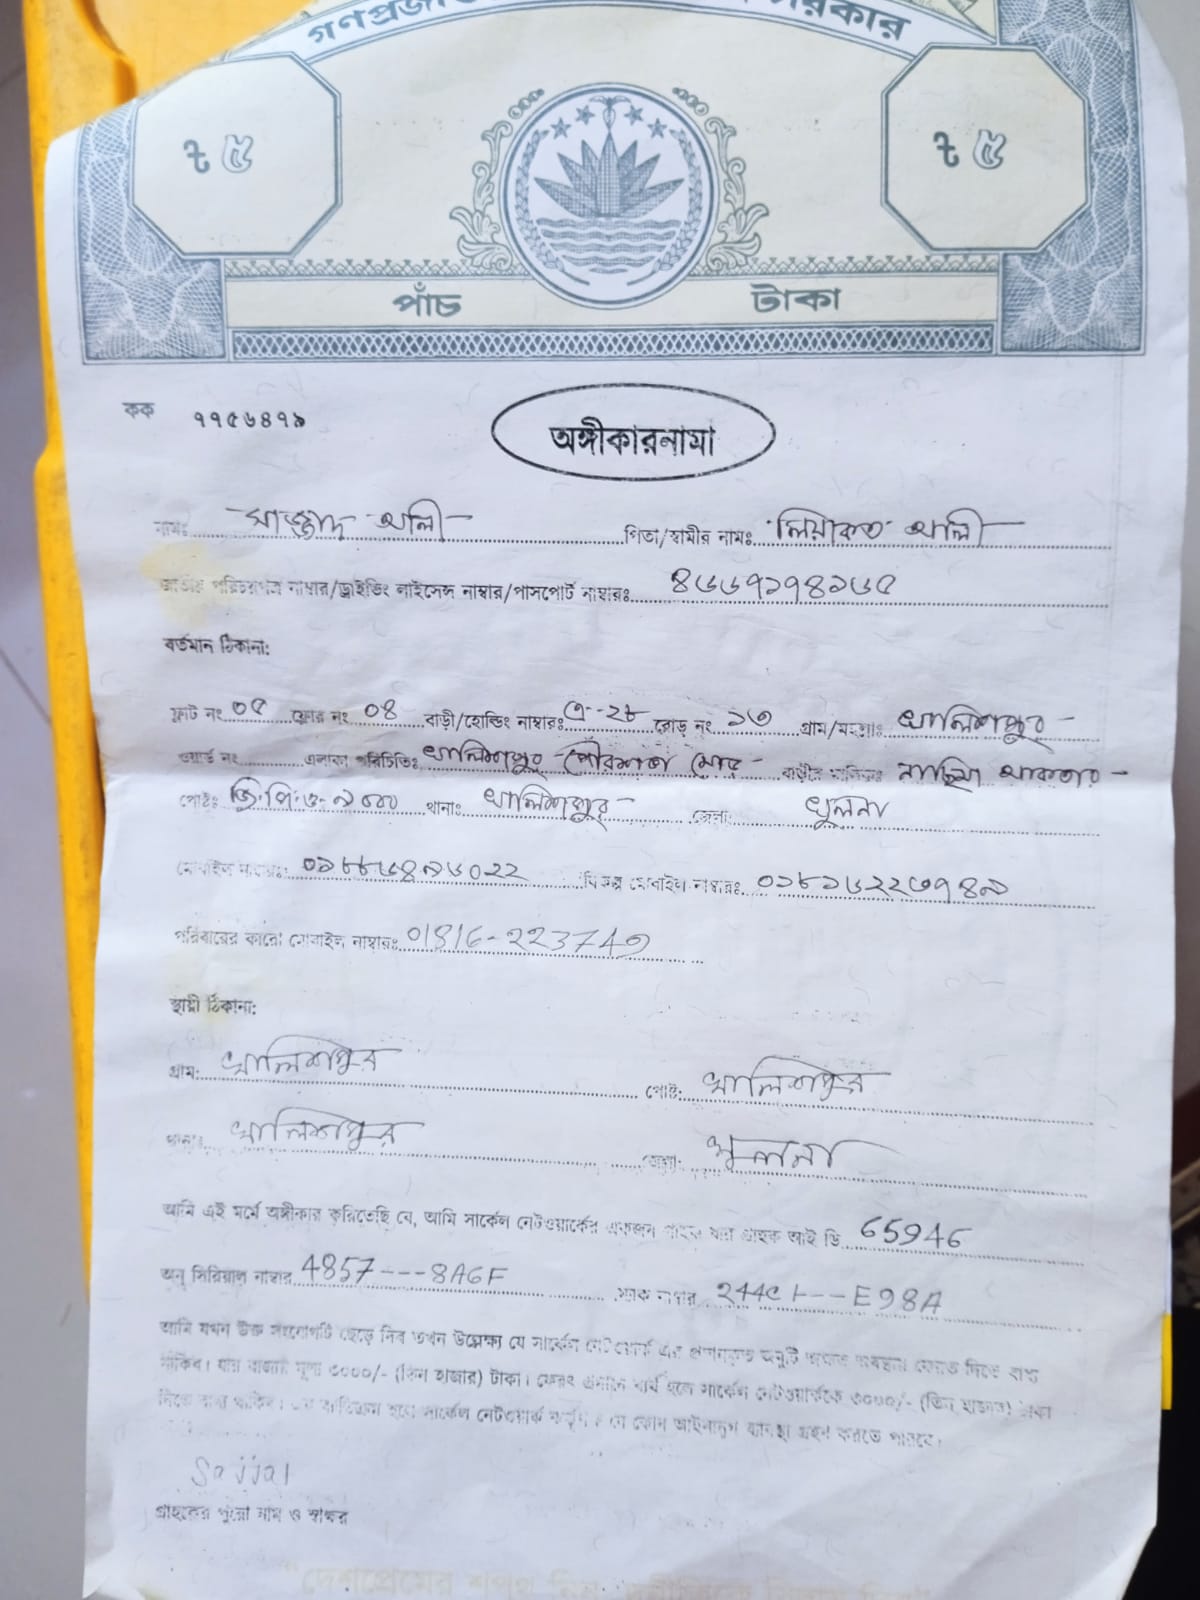 গণপ্রজা
সরকার
৳ ৫
৳ ৫
পাঁচ টাকা
কক ৭৭৫৬৪৭৯
অঙ্গীকারনামা
নামঃ সাজ্জাদ আলী পিতা/স্বামীর নামঃ লিয়াকত আলী
জাতীয় পরিচয়পত্র নাম্বার/ড্রাইভিং লাইসেন্স নাম্বার/পাসপোর্ট নাম্বারঃ ৪৬৬৭১৭৪১৬৫
বর্তমান ঠিকানা:
ফ্লাট নং ০৫ ফ্লোর নং ০৪ বাড়ী/হোল্ডিং নাম্বারঃ এ-২৮ রোড় নং ১৩ গ্রাম/মহল্লাঃ খালিশপুর
ওয়ার্ড নং এলাকা পরিচিতিঃ খালিশপুর পৌরসভা মোড় বাড়ীর মালিকঃ নাছিমা আকতার
পোষ্টঃ জি.পি.ও-৯০০০ থানাঃ খালিশপুর জেলা: খুলনা
মোবাইল নাম্বারঃ ০১৮৮৬৪৯৬০২২ বিকল্প মোবাইল নাম্বারঃ ০১৮১৬২২৩৭৪৯
পরিবারের কারো মোবাইল নাম্বারঃ 01816-223749
স্থায়ী ঠিকানা:
গ্রাম: খালিশপুর পোষ্ট: খালিশপুর
থানাঃ খালিশপুর জেলা: খুলনা
আমি এই মর্মে অঙ্গীকার করিতেছি যে, আমি সার্কেল নেটওয়ার্কের একজন গ্রাহক যার গ্রাহক আই ডি 65946
অনু সিরিয়াল নাম্বার 4857---8A6F ম্যাক নাম্বার 244C1---E98A
আমি যখন উক্ত সংযোগটি ছেড়ে দিব তখন উল্লেক্ষ্য যে সার্কেল নেটওয়ার্ক এর প্রদানকৃত অনুটি ফেরত দিতে বাধ্য
থাকিব। যার বাজার মূল্য ৩০০০/- (তিন হাজার) টাকা। ফেরৎ প্রদানে ব্যর্থ হলে সার্কেল নেটওয়ার্ককে ৩০০০/- (তিন হাজার) টাকা
দিতে বাধ্য থাকিব। এর ব্যতিক্রম হলে সার্কেল নেটওয়ার্ক কর্তৃপক্ষ যে কোন আইনানুগ ব্যবস্থা গ্রহন করতে পারবে।
Sajjal
গ্রাহকের পুরো নাম ও স্বাক্ষর
"দেশপ্রেমের শপথ নিন,